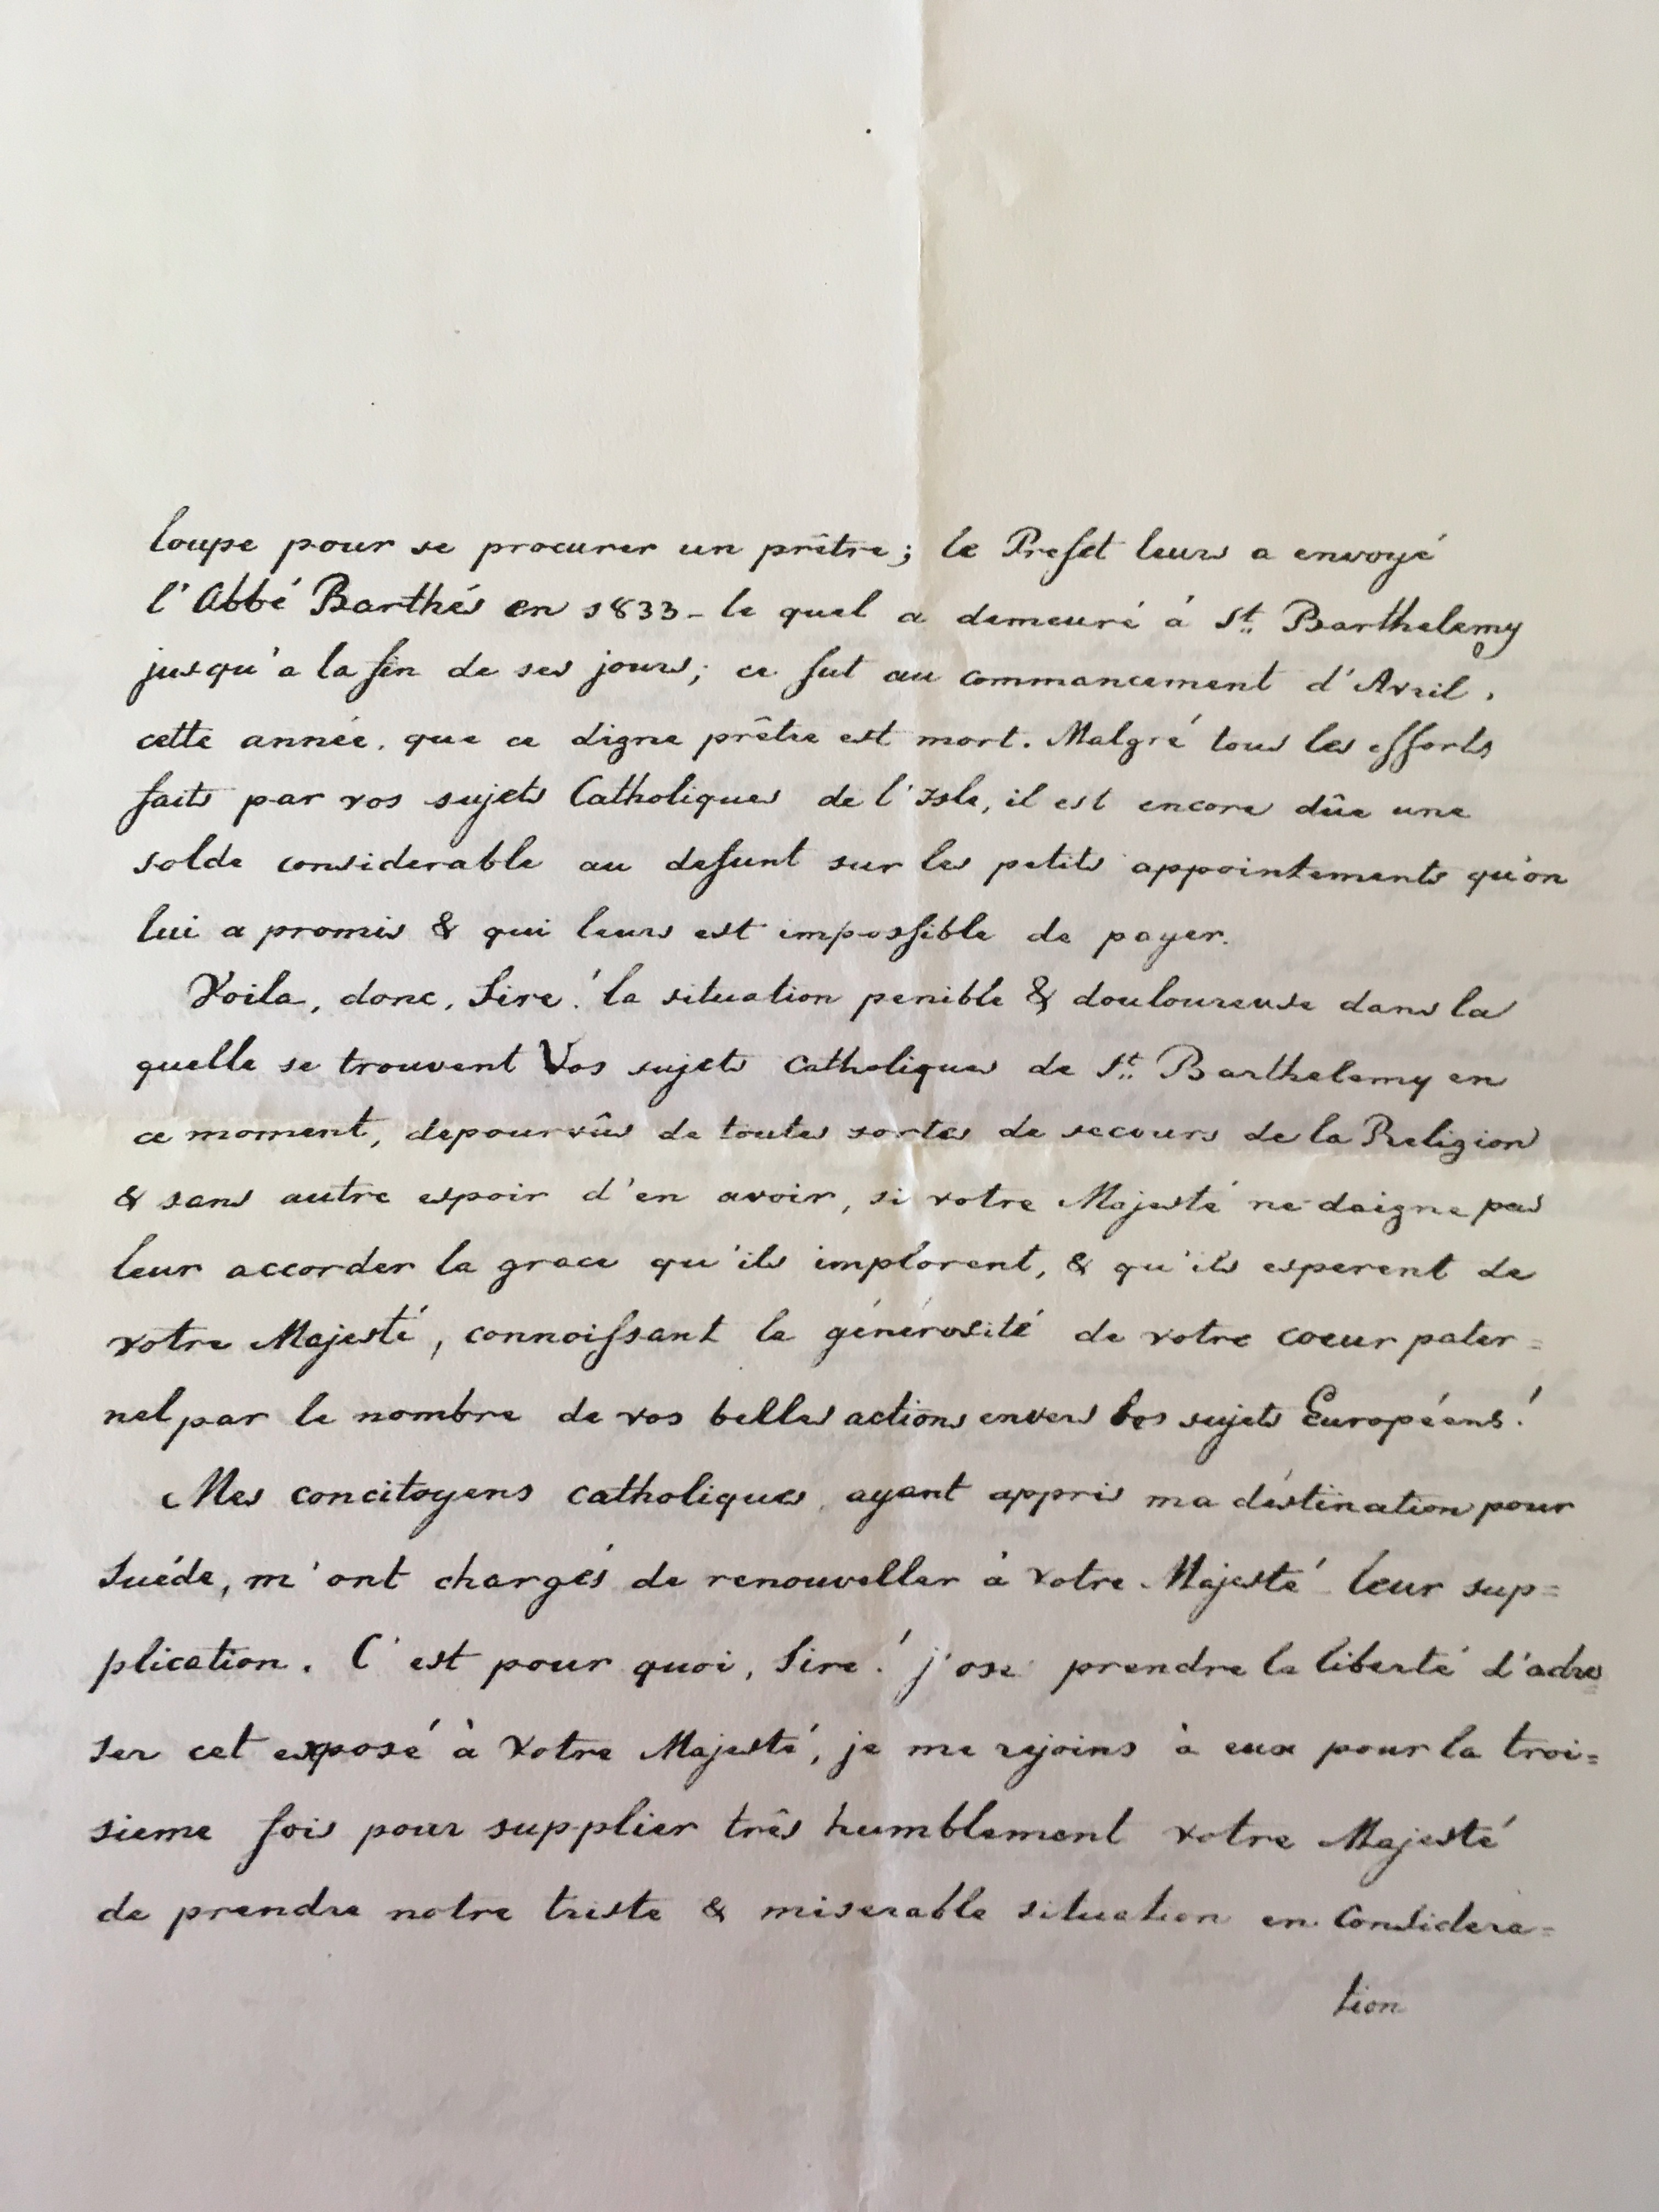 loupe pour se procurer un prêtre; le Prefet leurs a envoyé
l'Abbé Barthés en 1833 - le quel a demeuré à St. Barthelemy
jusqu'a la fin de ses jours; ce fut au commancement d'Avril,
cette année, que ce digne prêtre est mort. Malgré tous les efforts
faits par vos sujets Catholiques de l'Isle, il est encore dûe une
solde considerable au defunt sur les petits appointements qu'on
lui a promis & qui leurs est impossible de payer.
Voila, donc, Sire! la situation penible & douloureuse dans la
quelle se trouvent Vos sujets Catholiques de St. Barthelemy en
ce moment, depourvûs de toutes sortes de secours de la Religion
& sans autre espoir d'en avoir, si votre Majesté ne daigne pas
leur accorder la grace qu'ils implorent, & qu'ils esperent de
votre Majesté, connoissant la générosité de votre coeur pater=
nel par le nombre de vos belles actions envers Vos sujets Européens!
Mes concitoyens catholiques, ayant appris ma déstination pour
Suéde, m'ont chargés de renouveller à Votre Majesté leur sup=
plication. C'est pour quoi, Sire! j'ose prendre la liberté d'adres
ser cet exposé à Votre Majesté, je me rejoins à eux pour la troi=
sieme fois pour supplier três humblement votre Majesté
de prendre notre triste & miserable situation en Considera=
tion